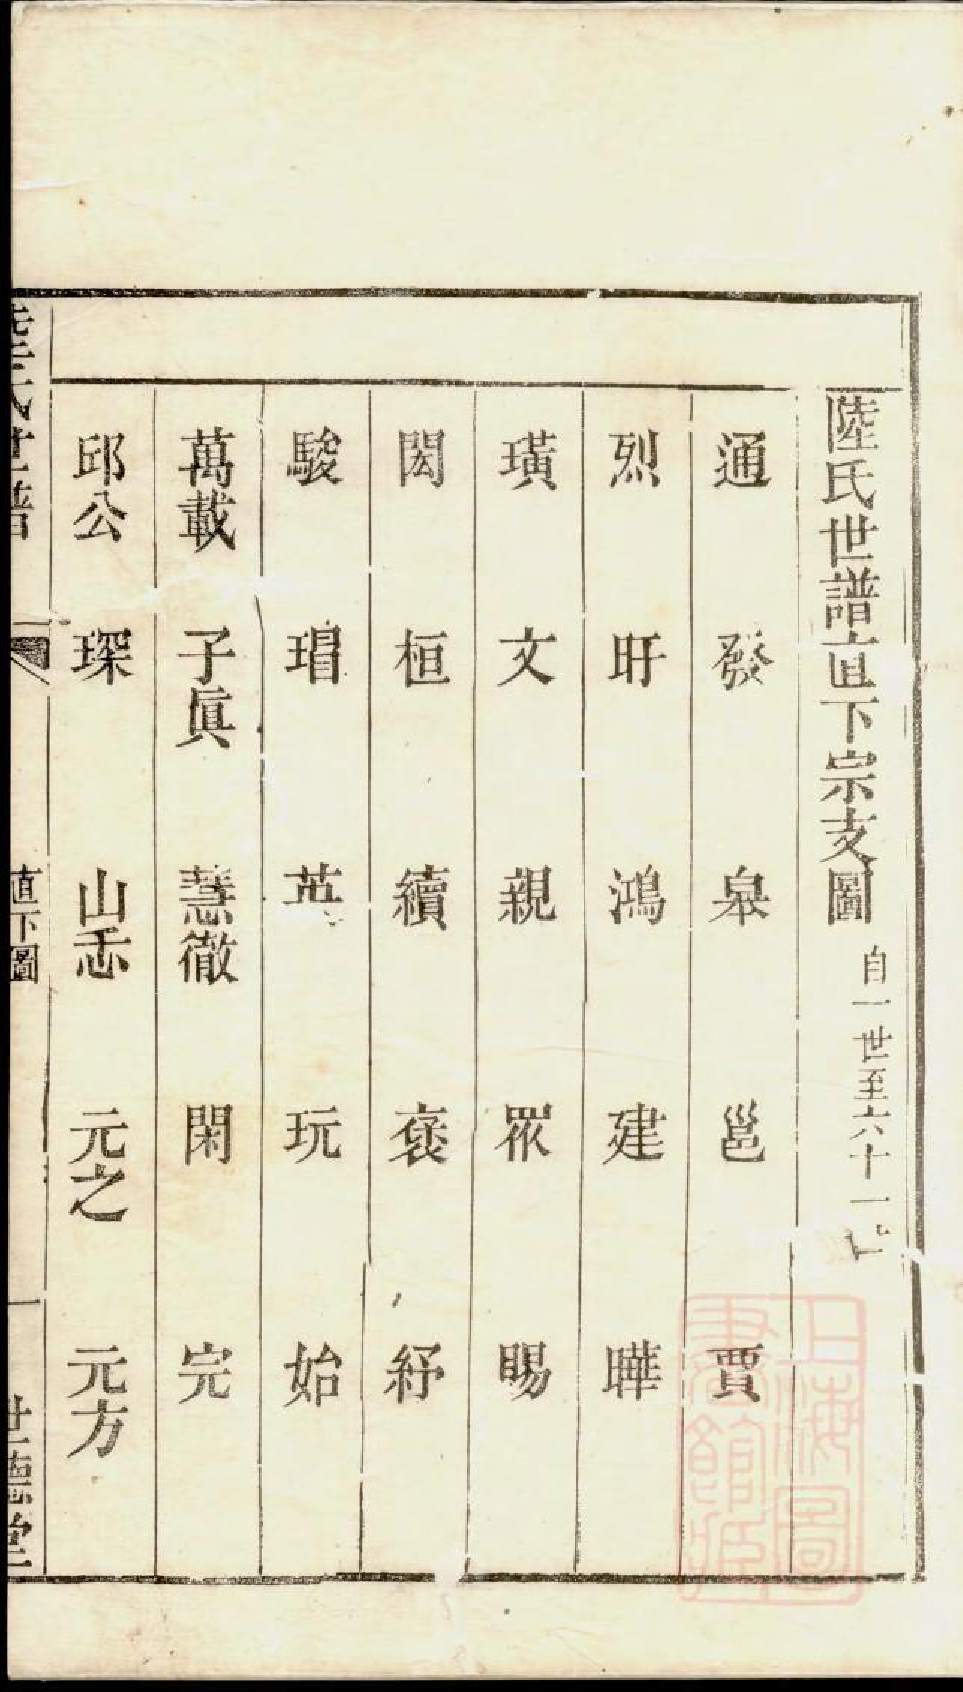 陸氏世譜直下宗支圖 自一世至六十一世
通 發 皋 邕 賈
烈 盱 鴻 建 曄
璜 文 親 眾 賜
閎 桓 續 褒 紓
駿 瑁 英 玩 始
萬載 子眞 慧徹 閑 完
邱公 琛 山忎 元之 元方
陸氏世譜 直下圖 一 世德堂
上海圖書館藏